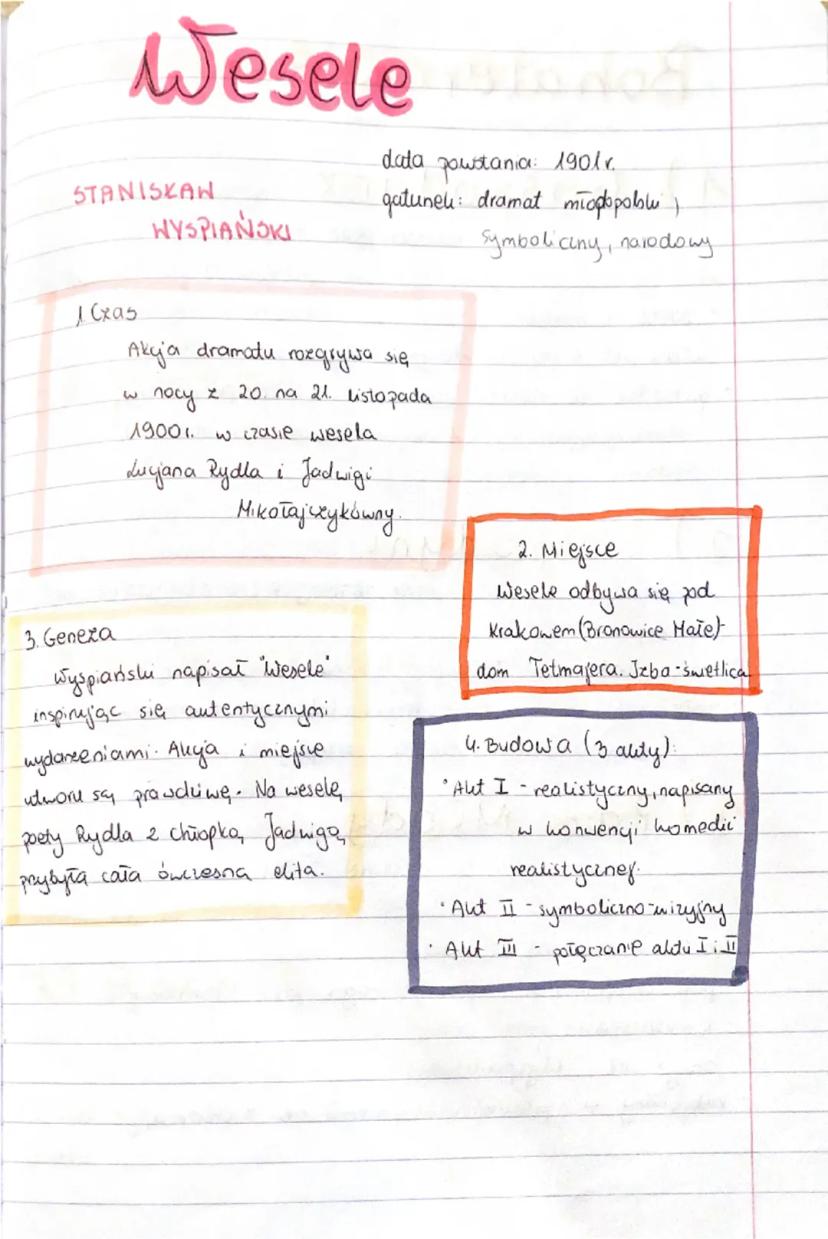 Wesele
STANISŁAW
WYSPIAŃSKI
data powstania: 1901r.
gatunek: dramat młodopolski,
symboliczny, narodowy
1. Czas
Akcja dramatu rozgrywa się
w nocy z 20. na 21. listopada
1900r. w czasie wesela
Lucjana Rydla i Jadwigi
Mikołajczykówny.
2. Miejsce
Wesele odbywa się pod
Krakowem (Bronowice Małe)-
dom Tetmajera. Izba-świetlica
3. Geneza
Wyspiański napisał "Wesele"
inspirując się autentycznymi
wydarzeniami. Akcja i miejsce
utworu są prawdziwe. Na wesele,
poety Rydla z chłopką, Jadwigą,
przybyła cała ówczesna elita.
4. Budowa (3 akty):
• Akt I - realistyczny, napisany
w konwencji komedii
realistycznej.
• Akt II - symboliczno-wizyjny
• Akt III - połączenie aktu I i II